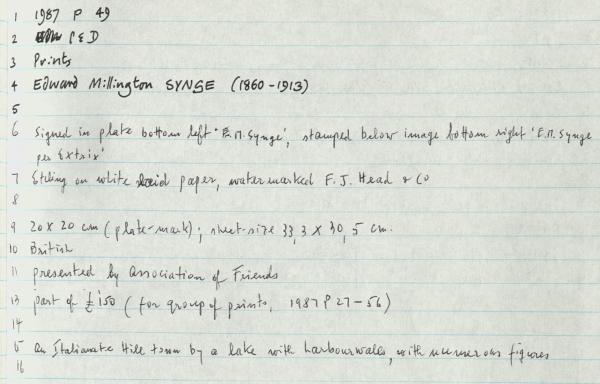 1 1987 P 49
2 P & D
3 Prints
4 Edward Millington SYNGE (1860-1913)
5
6 Signed in plate bottom left 'E.M. Synge', stamped below image bottom right 'E.M. Synge
per Extrix'
7 Etching on white laid paper, watermarked F. J. Head & Co
8
9 20 x 20 cm (plate-mark); sheet-size 33,3 x 30,5 cm.
10 British
11 presented by Association of Friends
13 part of £150 (for group of prints, 1987 P 27-56)
14
15 An Italianate Hill town by a lake with harbourwalls, with numerous figures
16